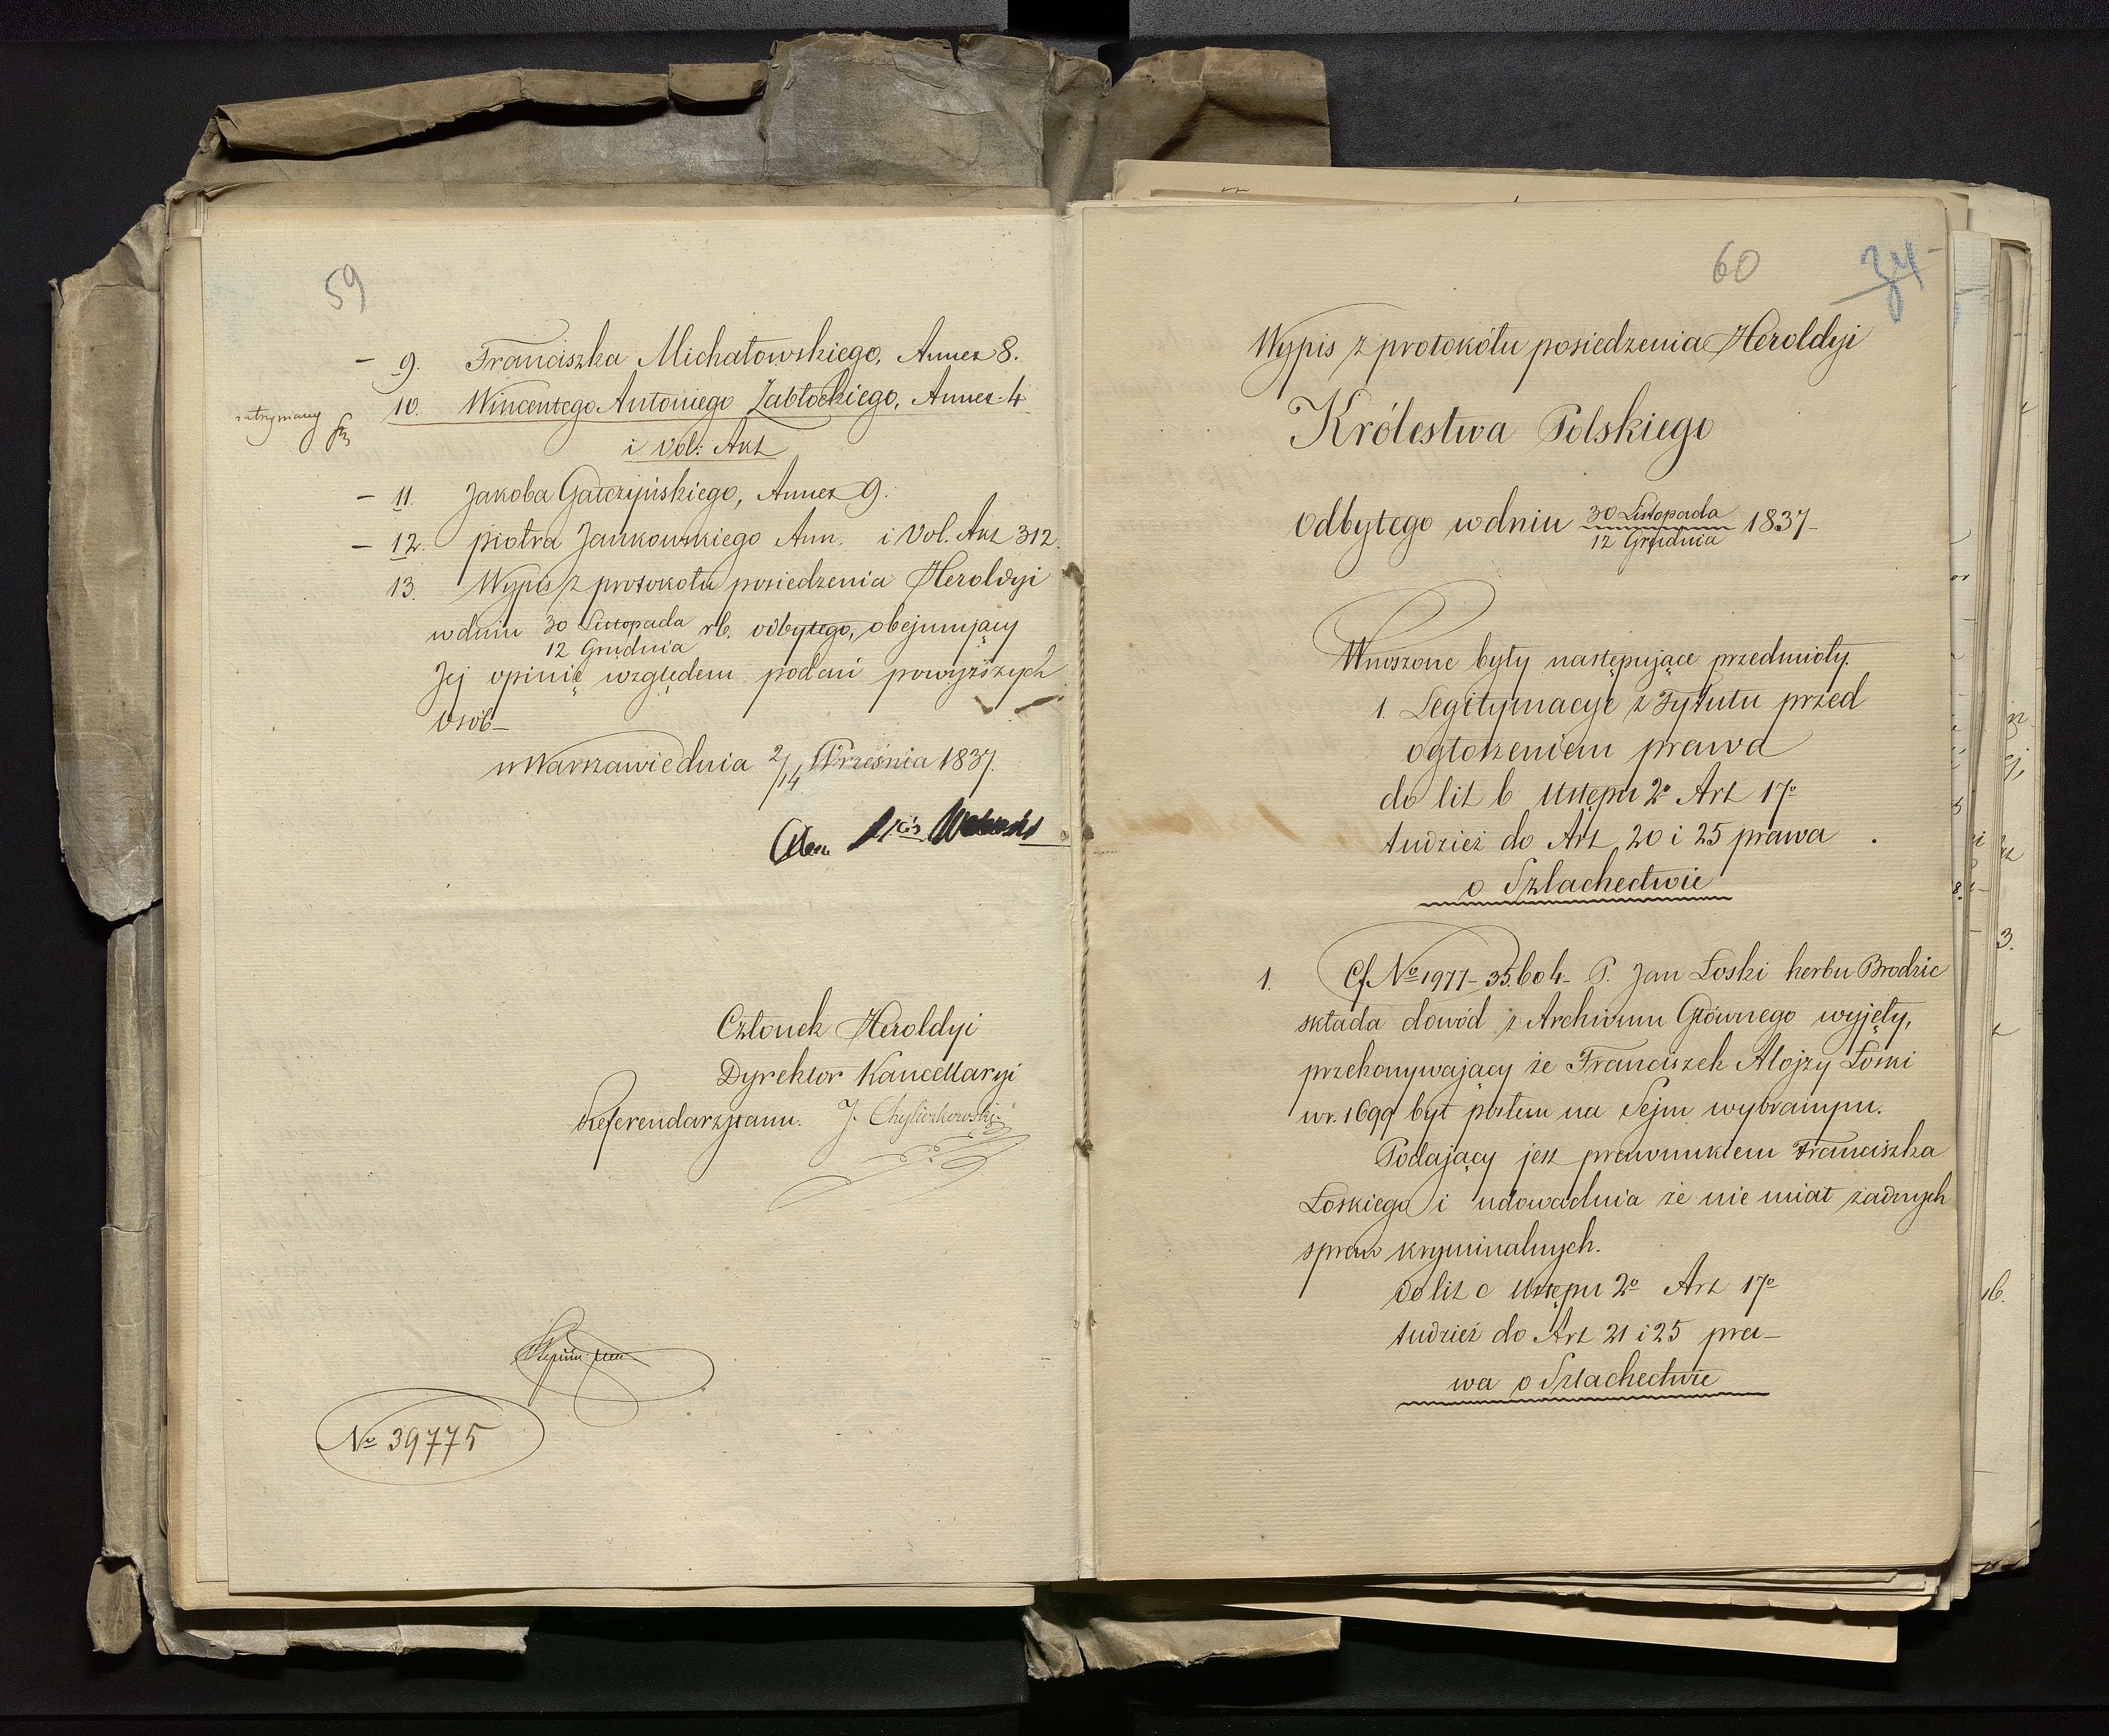 59
— 9. Franciszka Michałowskiego, Annex 8.
zatrzymany 10. Wincentego Antoniego Zabłockiego, Annex 4
i Vol: Akt
— 11. Jakoba Gałczyńskiego, Annex 9.
— 12. piotra Jankowskiego Ann. i Vol. Akt 312.
13. Wypis z protokołu posiedzenia Heroldyi
w dniu 30 Listopada / 12 Grudnia rb. odbytego, obejmujący
Jej opinię względem podań powyższych
osób—
w Warszawie dnia 2/14 Września 1837.
Członek Heroldyi
Dyrektor Kancellaryi
Referendarz Stanu. J. Chyliczkowski
№ 39775
60
34
Wypis z protokółu posiedzenia Heroldyi
Królestwa Polskiego
odbytego w dniu 30 Listopada / 12 Grudnia 1837—
Wnoszone były następujące przedmioty.
1. Legitymacye z Tytułu przed
ogłoszeniem prawa
do lit b Ustępu 2º Art 17º
tudzież do Art 20 i 25 prawa
o Szlachectwie
1. Cf № 1977—35.604— P. Jan Łoski herbu Brodzic
składa dowód z Archiwum Głównego wyjęty,
przekonywający że Franciszek Alojzy Łoski
w r. 1699 był posłem na Sejm wybranym.
Podający jest prawnukiem Franciszka
Łoskiego i udowadnia że nie miał żadnych
spraw kryminalnych.
do lit c Ustępu 2º Art 17º
tudzież do Art 21 i 25 pra—
wa o Szlachectwie